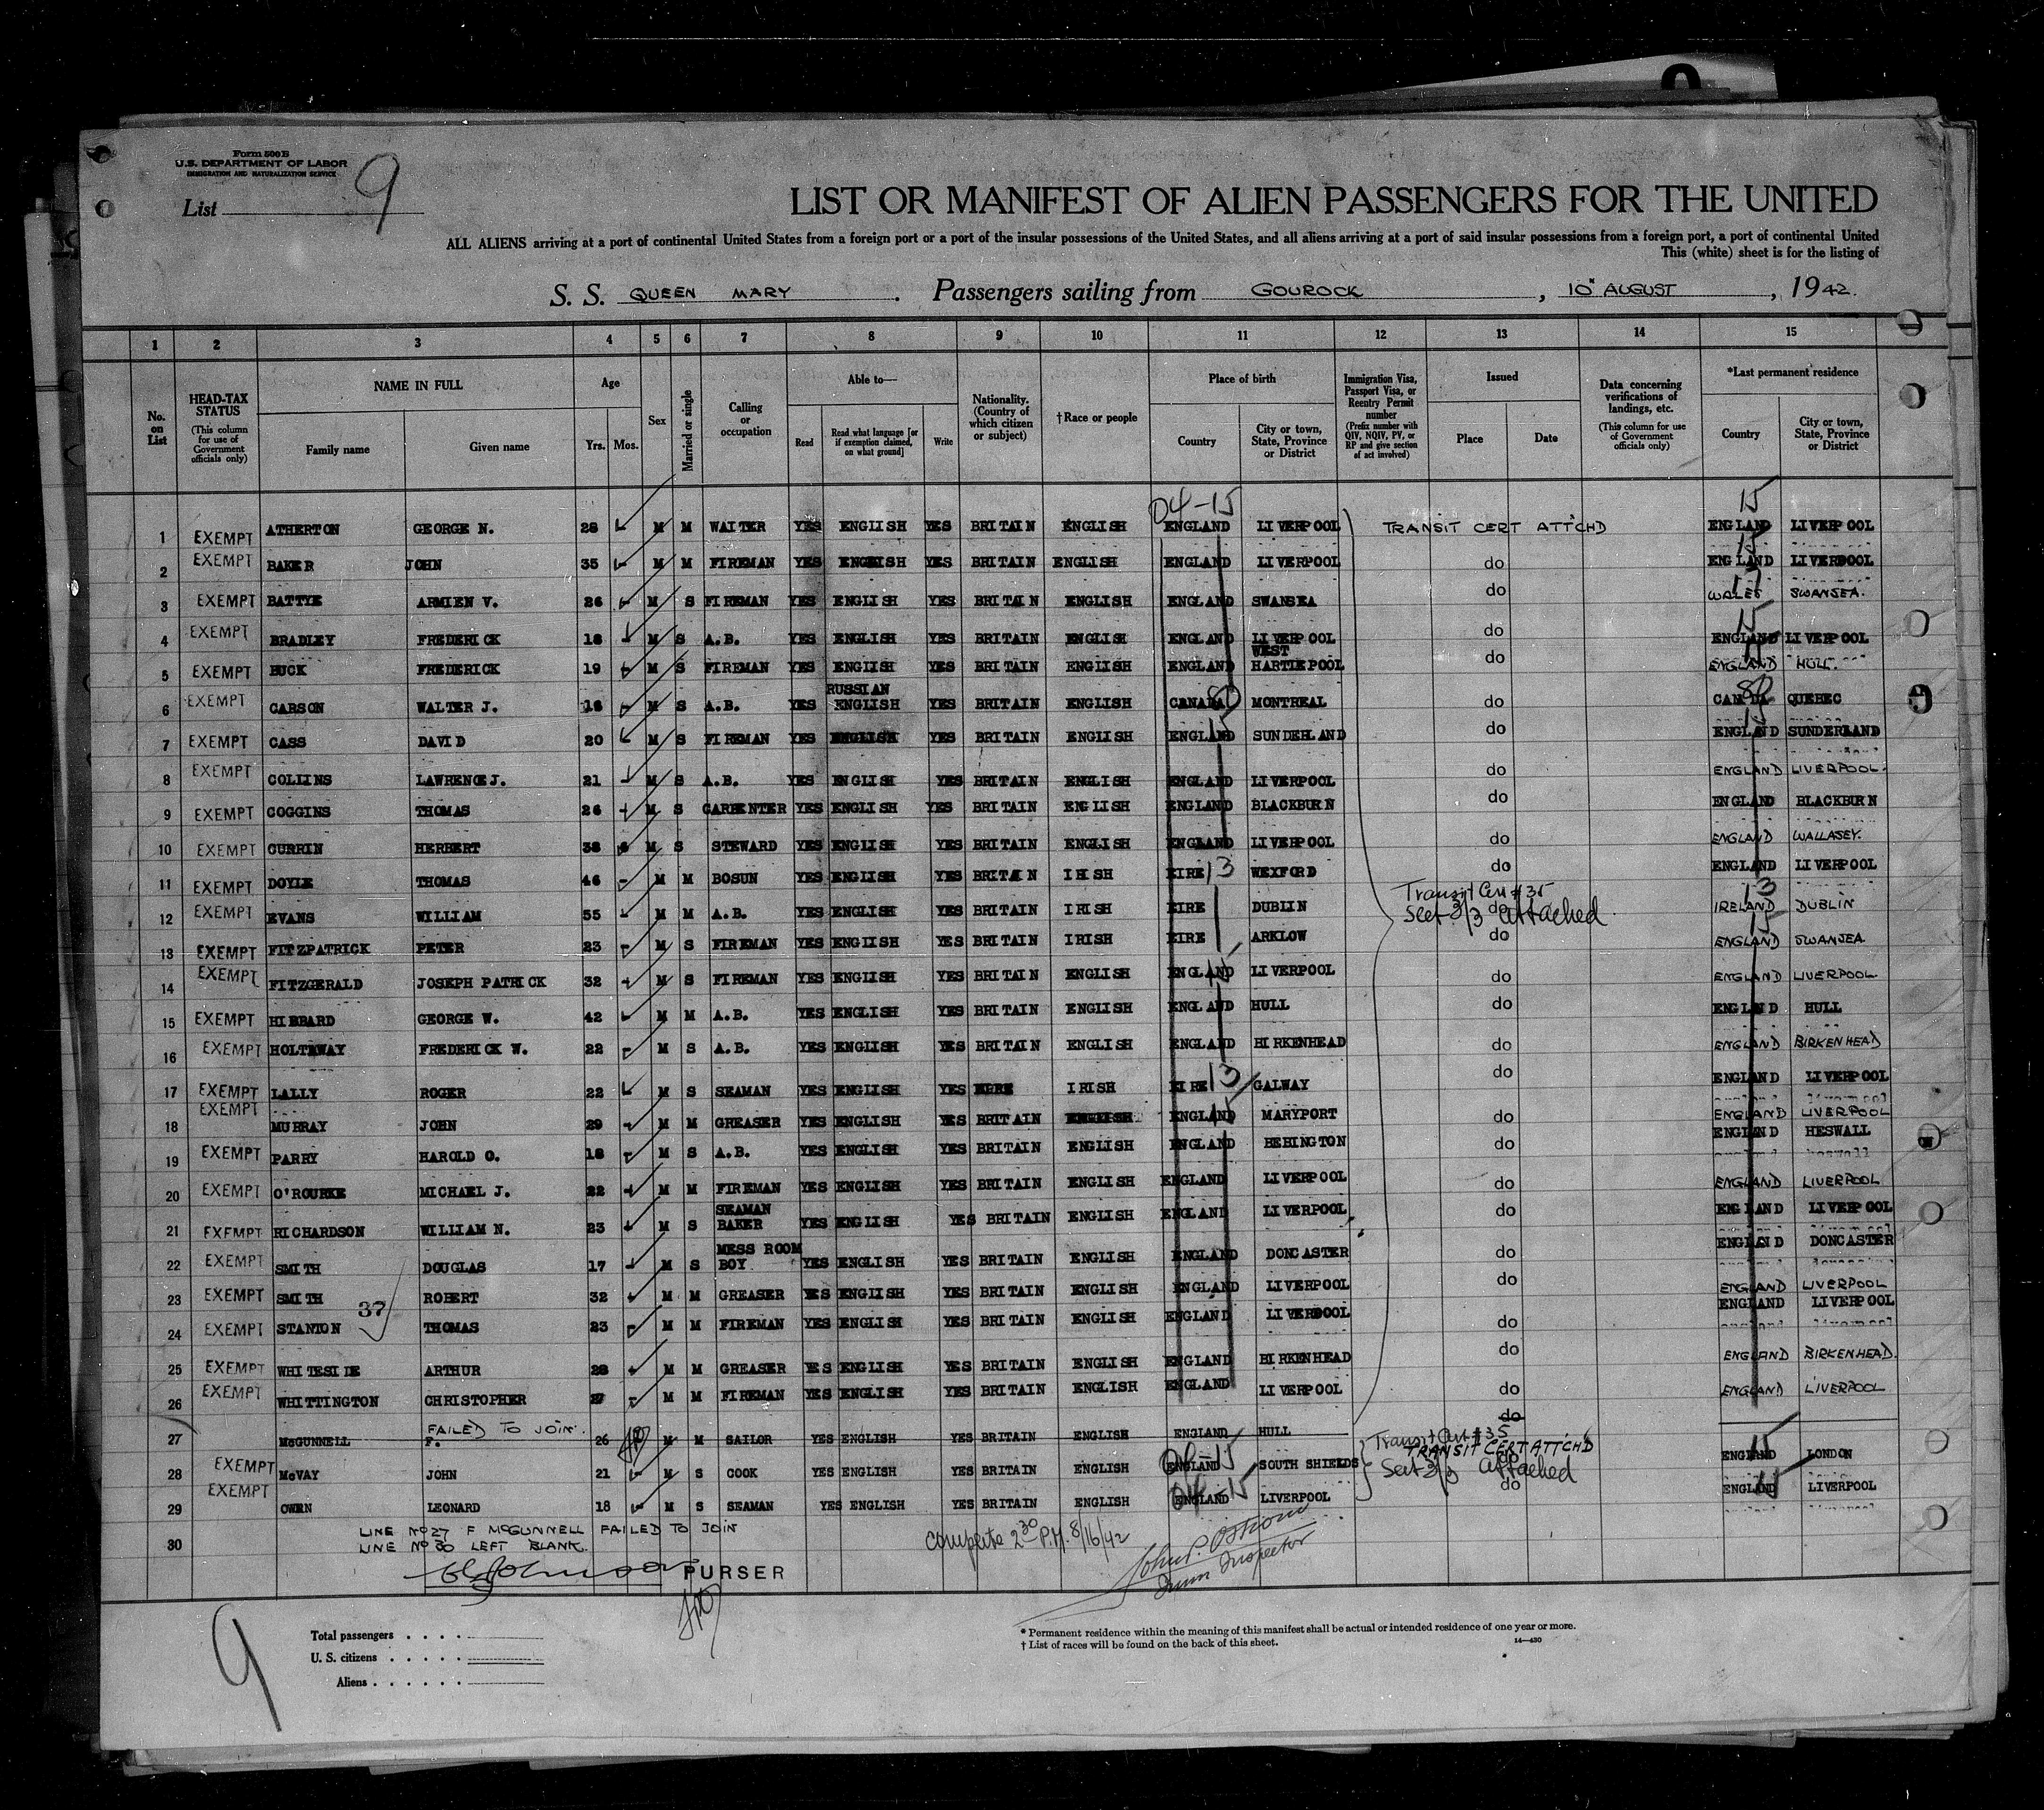 Form 500 B
U.S. DEPARTMENT OF LABOR
IMMIGRATION AND NATURALIZATION SERVICE
List 9
LIST OR MANIFEST OF ALIEN PASSENGERS FOR THE UNITED
ALL ALIENS arriving at a port of continental United States from a foreign port or a port of the insular possessions of the United States, and all aliens arriving at a port of said insular possessions from a foreign port, a port of continental United
This (white) sheet is for the listing of
S. S. QUEEN MARY. Passengers sailing from GOUROCK, 10" AUGUST, 1942.
1 2 3 4 5 6 7 8 9 10 11 12 13 14 15
No. on List
HEAD-TAX STATUS (This column for use of Government officials only)
NAME IN FULL Family name Given name
Age Yrs. Mos.
Sex
Married or single
Calling or occupation
Able to— Read Read what language [or if exemption claimed, on what ground] Write
Nationality. (Country of which citizen or subject)
†Race or people
Place of birth Country City or town, State, Province or District
Immigration Visa, Passport Visa, or Reentry Permit number (Prefix number with QIV, NQIV, PV, or RP and give section of act involved)
Issued Place Date
Data concerning verifications of landings, etc. (This column for use of Government officials only)
*Last permanent residence Country City or town, State, Province or District
04-15 15
1 EXEMPT ATHERTON GEORGE N. 28 M M WAITER YES ENGLISH YES BRITAIN ENGLISH ENGLAND LIVERPOOL TRANSIT CERT ATTCHD ENGLAND LIVERPOOL
15
2 EXEMPT BAKER JOHN 35 M M FIREMAN YES ENGLISH YES BRITAIN ENGLISH ENGLAND LIVERPOOL do ENGLAND LIVERPOOL
3 EXEMPT BATTYE ARMIEN V. 26 M S FIREMAN YES ENGLISH YES BRITAIN ENGLISH ENGLAND SWANSEA do WALES SWANSEA.
15
4 EXEMPT BRADLEY FREDERICK 18 M S A.B. YES ENGLISH YES BRITAIN ENGLISH ENGLAND LIVERPOOL do ENGLAND LIVERPOOL
5 EXEMPT BUCK FREDERICK 19 M S FIREMAN YES ENGLISH YES BRITAIN ENGLISH ENGLAND WEST HARTLEPOOL do ENGLAND HULL.
6 EXEMPT CARSON WALTER J. 18 M S A.B. YES RUSSIAN ENGLISH YES BRITAIN ENGLISH CANADA 80 MONTREAL do CANADA 80 QUEBEC
15 15
7 EXEMPT CASS DAVID 20 M S FIREMAN YES ENGLISH YES BRITAIN ENGLISH ENGLAND SUNDERLAND do ENGLAND SUNDERLAND
8 EXEMPT COLLINS LAWRENCE J. 21 M S A.B. YES ENGLISH YES BRITAIN ENGLISH ENGLAND LIVERPOOL do ENGLAND LIVERPOOL.
9 EXEMPT COGGINS THOMAS 26 M S CARPENTER YES ENGLISH YES BRITAIN ENGLISH ENGLAND BLACKBURN do ENGLAND BLACKBURN
10 EXEMPT CURRIN HERBERT 38 M S STEWARD YES ENGLISH YES BRITAIN ENGLISH ENGLAND LIVERPOOL do ENGLAND WALLASEY.
11 EXEMPT DOYLE THOMAS 46 M M BOSUN YES ENGLISH YES BRITAIN IRISH EIRE 13 WEXFORD do ENGLAND LIVERPOOL
Transit Cert #35 13
12 EXEMPT EVANS WILLIAM 55 M M A.B. YES ENGLISH YES BRITAIN IRISH EIRE DUBLIN do IRELAND DUBLIN
Sect 3/3 attached. 15
13 EXEMPT FITZPATRICK PETER 23 M S FIREMAN YES ENGLISH YES BRITAIN IRISH EIRE ARKLOW do ENGLAND SWANSEA
14 EXEMPT FITZGERALD JOSEPH PATRICK 32 M S FIREMAN YES ENGLISH YES BRITAIN ENGLISH ENGLAND 15 LIVERPOOL do ENGLAND LIVERPOOL.
15 EXEMPT HIBBARD GEORGE W. 42 M M A.B. YES ENGLISH YES BRITAIN ENGLISH ENGLAND HULL do ENGLAND HULL
16 EXEMPT HOLTAWAY FREDERICK W. 22 M S A.B. YES ENGLISH YES BRITAIN ENGLISH ENGLAND BIRKENHEAD do ENGLAND BIRKENHEAD
17 EXEMPT LALLY ROGER 22 M S SEAMAN YES ENGLISH YES EIRE IRISH EIRE 13 GALWAY do ENGLAND LIVERPOOL
18 EXEMPT MURRAY JOHN 29 M M GREASER YES ENGLISH YES BRITAIN ENGLISH ENGLAND 15 MARYPORT do ENGLAND LIVERPOOL
19 EXEMPT PARRY HAROLD O. 18 M S A.B. YES ENGLISH YES BRITAIN ENGLISH ENGLAND BEBINGTON do ENGLAND HESWALL
20 EXEMPT O'ROURKE MICHAEL J. 22 M M FIREMAN YES ENGLISH YES BRITAIN ENGLISH ENGLAND LIVERPOOL do ENGLAND LIVERPOOL
21 EXEMPT RICHARDSON WILLIAM N. 23 M S SEAMAN BAKER YES ENGLISH YES BRITAIN ENGLISH ENGLAND LIVERPOOL do ENGLAND LIVERPOOL
22 EXEMPT SMITH DOUGLAS 17 M S MESS ROOM BOY YES ENGLISH YES BRITAIN ENGLISH ENGLAND DONCASTER do ENGLAND DONCASTER
23 EXEMPT SMITH ROBERT 32 M M GREASER YES ENGLISH YES BRITAIN ENGLISH ENGLAND LIVERPOOL do ENGLAND LIVERPOOL
37
24 EXEMPT STANTON THOMAS 23 M M FIREMAN YES ENGLISH YES BRITAIN ENGLISH ENGLAND LIVERPOOL do ENGLAND LIVERPOOL
25 EXEMPT WHITESIDE ARTHUR 28 M M GREASER YES ENGLISH YES BRITAIN ENGLISH ENGLAND BIRKENHEAD do ENGLAND BIRKENHEAD.
26 EXEMPT WHITTINGTON CHRISTOPHER M M FIREMAN YES ENGLISH YES BRITAIN ENGLISH ENGLAND LIVERPOOL do ENGLAND LIVERPOOL
FAILED TO JOIN. do
27 McGUNNELL F. 26 M M SAILOR YES ENGLISH YES BRITAIN ENGLISH ENGLAND HULL
Transit Cert #35
TRANSIT CERT ATTCH'D
28 EXEMPT McVAY JOHN 21 M S COOK YES ENGLISH YES BRITAIN ENGLISH ENGLAND 04-15 SOUTH SHIELDS do ENGLAND 15 LONDON
Sect 3/3 attached
29 EXEMPT OWEN LEONARD 18 M S SEAMAN YES ENGLISH YES BRITAIN ENGLISH ENGLAND 04-15 LIVERPOOL do ENGLAND 15 LIVERPOOL
30
LINE No 27 F McGUNNELL FAILED TO JOIN
LINE No 30 LEFT BLANK.
PURSER
Complete 2 30 P.M. 8/16/42
John P.
Imm Inspector
9
Total passengers
U. S. citizens
Aliens
* Permanent residence within the meaning of this manifest shall be actual or intended residence of one year or more.
† List of races will be found on the back of this sheet.
14—430